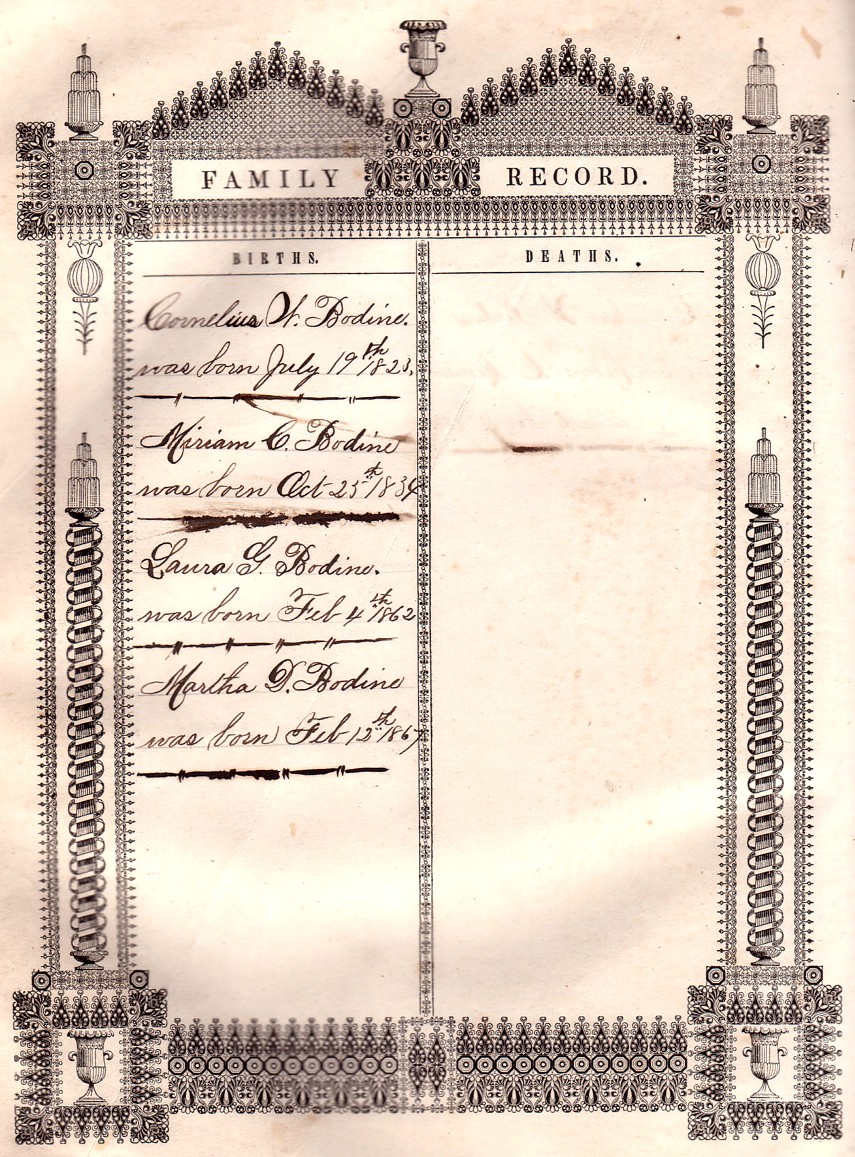 FAMILY RECORD.
BIRTHS.
Cornelius W. Bodine.
was born July 19th 1823.
Miriam C. Bodine
was born Oct 25th 1834
Laura G. Bodine.
was born Feb 4th 1862
Martha D. Bodine
was born Feb 12th 1867
DEATHS.